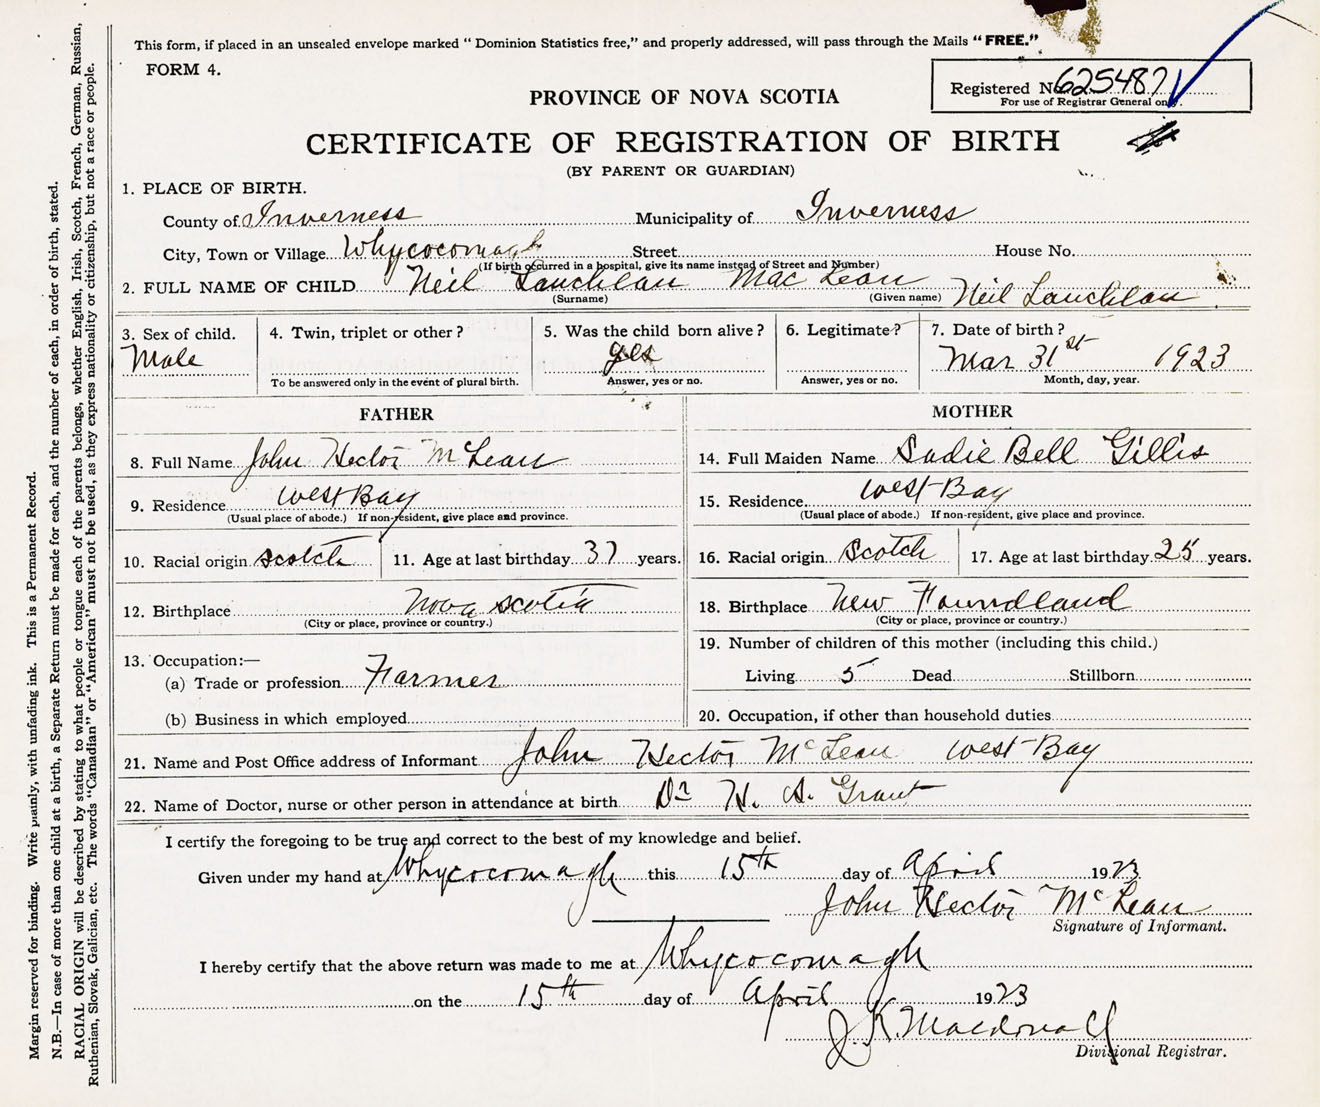 This form, if placed in an unsealed envelope marked " Dominion Statistics free," and properly addressed, will pass through the Mails " FREE."
FORM 4.
Registered No. 625487
For use of Registrar General only.
PROVINCE OF NOVA SCOTIA
CERTIFICATE OF REGISTRATION OF BIRTH
(BY PARENT OR GUARDIAN)
1. PLACE OF BIRTH.
County of Inverness Municipality of Inverness
City, Town or Village Whycocomagh Street House No.
(If birth occurred in a hospital, give its name instead of Street and Number)
2. FULL NAME OF CHILD Neil Lauchlan Mac Lean Neil Lauchlan
(Surname) (Given name)
3. Sex of child. 4. Twin, triplet or other? 5. Was the child born alive? 6. Legitimate? 7. Date of birth?
Male yes Mar 31st 1923
To be answered only in the event of plural birth. Answer, yes or no. Answer, yes or no. Month, day, year.
FATHER
8. Full Name John Hector McLean
9. Residence West Bay
(Usual place of abode.) If non-resident, give place and province.
10. Racial origin scotch 11. Age at last birthday 37 years.
12. Birthplace Nova Scotia
(City or place, province or country.)
13. Occupation:—
(a) Trade or profession Farmer
(b) Business in which employed
MOTHER
14. Full Maiden Name Sadie Bell Gillis
15. Residence West Bay
(Usual place of abode.) If non-resident, give place and province.
16. Racial origin Scotch 17. Age at last birthday 25 years.
18. Birthplace New Foundland
(City or place, province or country.)
19. Number of children of this mother (including this child.)
Living 5 Dead Stillborn
20. Occupation, if other than household duties
21. Name and Post Office address of Informant John Hector McLean West Bay
22. Name of Doctor, nurse or other person in attendance at birth Dr H. A. Grant
I certify the foregoing to be true and correct to the best of my knowledge and belief.
Given under my hand at Whycocomagh this 15th day of April 1923
John Hector McLean
Signature of Informant.
I hereby certify that the above return was made to me at Whycocomagh
on the 15th day of April 1923
J. K. Macdonald
Divisional Registrar.
Margin reserved for binding. Write plainly, with unfading ink. This is a Permanent Record.
N.B.—In case of more than one child at a birth, a Separate Return must be made for each, and the number of each, in order of birth, stated.
RACIAL ORIGIN will be described by stating to what people or tongue each of the parents belongs, whether English, Irish, Scotch, French, German, Russian,
Ruthenian, Slovak, Galician, etc. The words "Canadian" or "American" must not be used, as they express nationality or citizenship, but not a race or people.